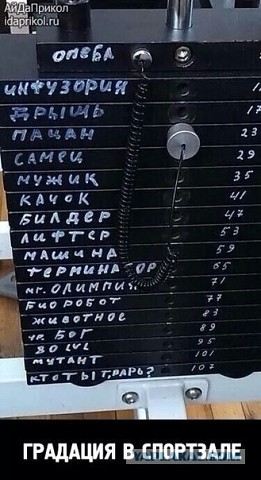 АйДаПрикол
idaprikol.ru
ОПЕБА
ИНФУЗОРИЯ
ДРЫЩЬ 17
ПАЦАН 23
САМЕЦ 29
МУЖИК 35
КАЧОК 41
БИЛДЕР 47
ЛИФТЕР 53
МАШИНА 59
ТЕРМИНА ОР 65
МГ. ОЛИМПИЯ 71
БИОРОБОТ 77
ЖИВОТНОЕ 83
БОГ 89
80 LVL 95
МУТАНТ 101
КТО ТЫ ТВАРЬ? 107
ГРАДАЦИЯ В СПОРТЗАЛЕ